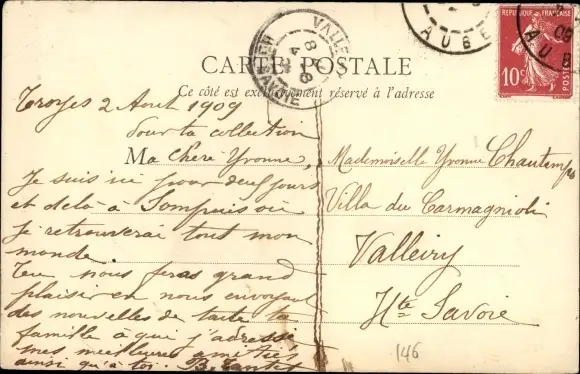 CARTE POSTALE
Ce côté est exclusivement réservé à l'adresse
REPUBLIQUE FRANÇAISE
10c
POSTES
AUBE
09
AUB
VALLE
HTE SAVOIE
Troyes 2 Aout 1909
Pour ta collection
Ma Chère Yvonne,
Je suis ici pour deux jours
et delà à Sompuis où
je retrouverai tout mon
monde.
Tu nous feras grand
plaisir en nous envoyant
des nouvelles de toute ta
famille à qui j'adresse
mes meilleures amitiés
ainsi qu'à toi. B.
Mademoiselle Yvonne Chautemps
Villa du
Valleiry
Hte Savoie
146